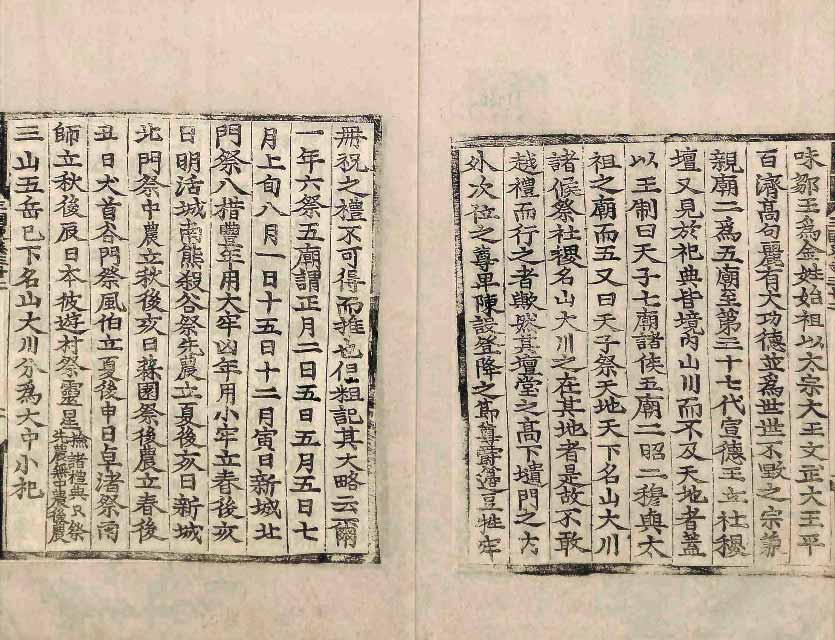 味鄒王爲金姓始祖以太宗大王文武大王平
百濟髙句麗有大功德並爲世世不毀之宗兼
親廟二爲五廟至第三十七代宣德王立社稷
壇又見於祀典皆境内山川而不及天地者蓋
以王制曰天子七廟諸侯五廟二昭二穆與太
祖之廟而五又曰天子祭天地天下名山大川
諸候祭社稷名山大川之在其地者是故不敢
越禮而行之者歟然其壇堂之髙下壝門之内
外次位之尊卑陳設登降之節尊爵籩豆牲牢
冊祝之禮不可得而推也但粗記其大略云爾
一年六祭五廟謂正月二日五日五月五日七
月上旬八月一日十五日十二月寅日新城北
門祭八楷豊年用大牢凶年用小牢立春後亥
日明活城南熊殺谷祭先農立夏後亥日新城
北門祭中農立秋後亥日蒜園祭後農立春後
丑日犬首谷門祭風伯立夏後申日卓渚祭雨
師立秋後辰日本彼遊村祭靈星撿諸禮典只祭先農無中農後農
三山五岳已下名山大川分爲大中小祀